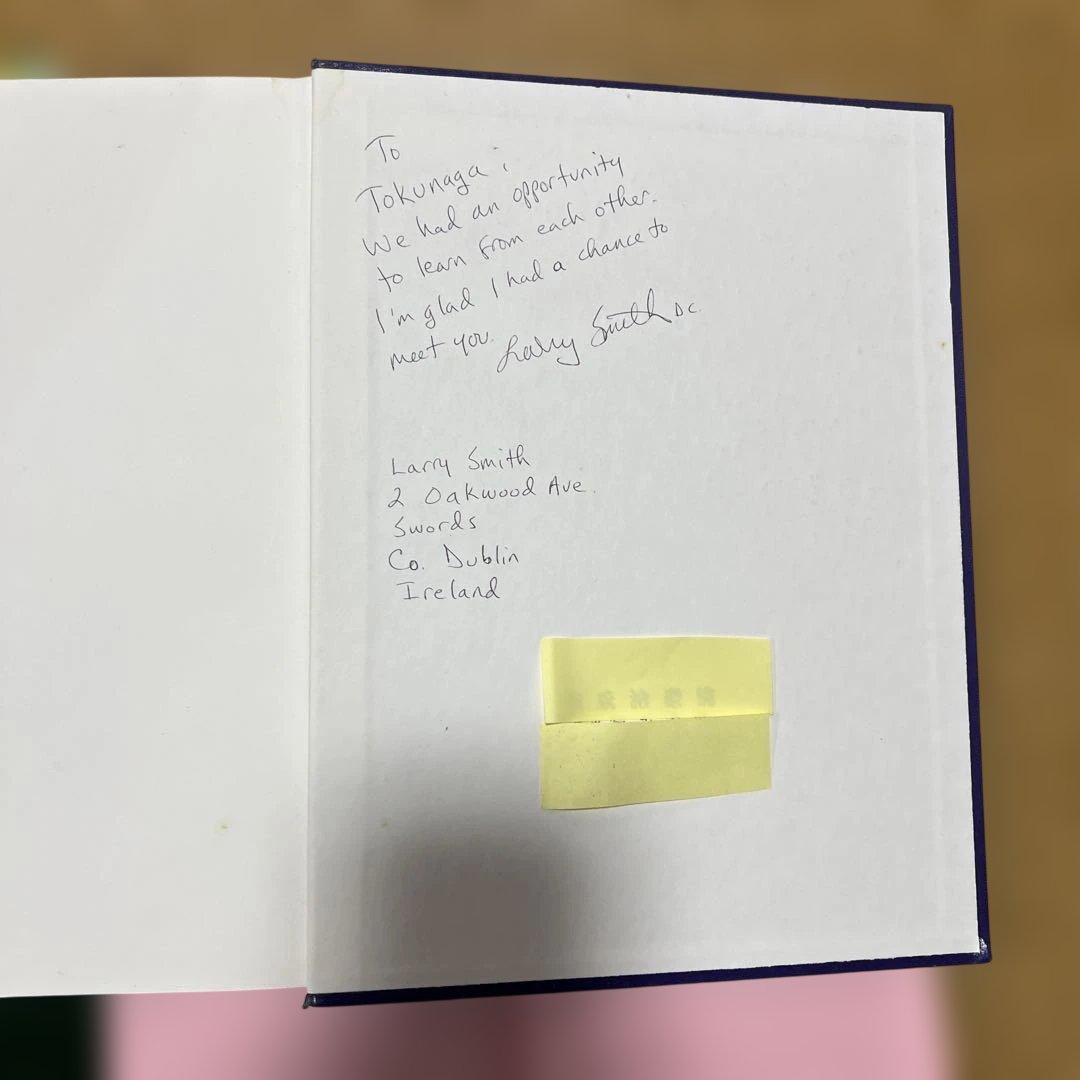 To
Tokunaga :
We had an opportunity
to learn from each other.
I'm glad I had a chance to
meet you. Larry Smith DC.
Larry Smith
2 Oakwood Ave.
Swords
Co. Dublin
Ireland